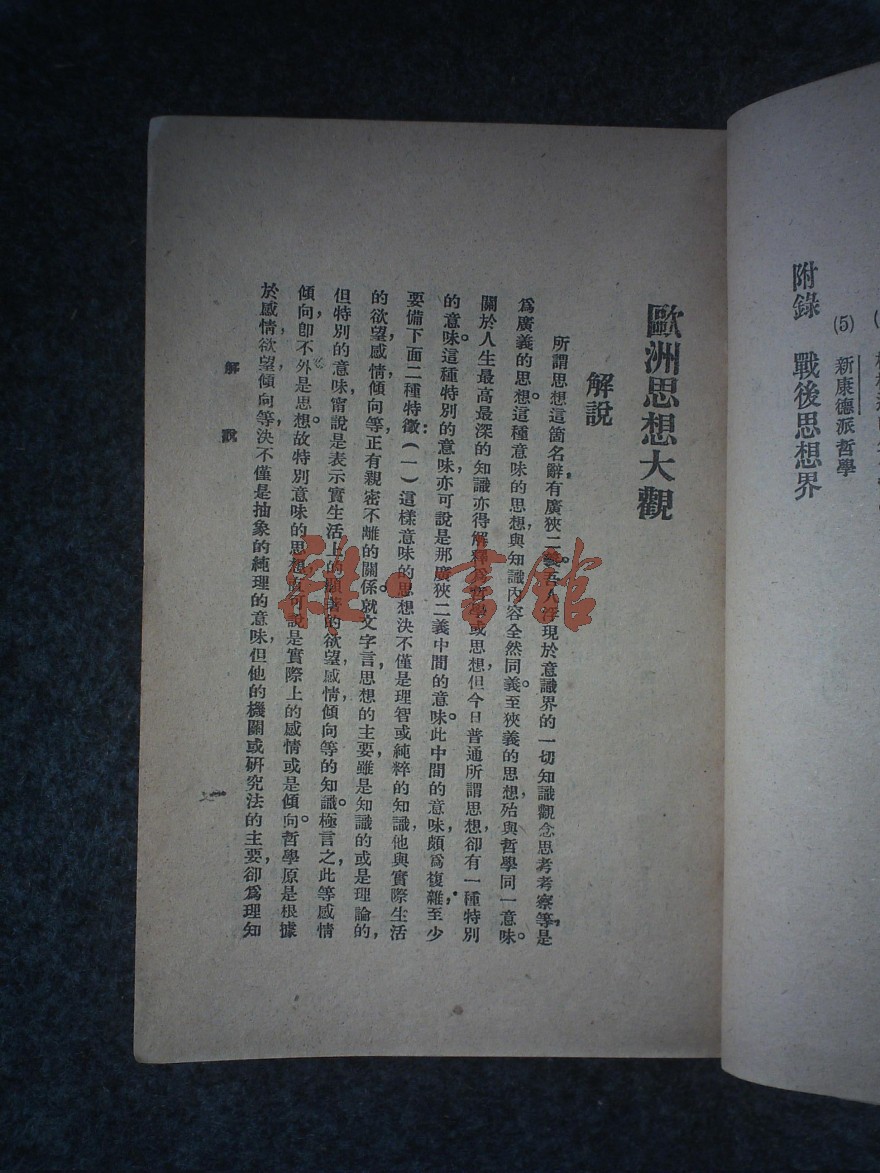 (5) 新康德派哲學
附錄 戰後思想界
歐洲思想大觀
解說
所謂思想這箇名辭,有廣狹二義。吾人浮現於意識界的一切知識觀念思考考察等,是
爲廣義的思想。這種意味的思想,與知識內容全然同義。至狹義的思想,殆與哲學同一意味。
關於人生最高最深的知識,亦得解釋爲哲學或思想,但今日普通所謂思想,卻有一種特別
的意味。這種特別的意味,亦可說是那廣狹二義中間的意味。此中間的意味,頗爲複雜,至少
要備下面二種特徵:(一)這樣意味的思想,決不僅是理智或純粹的知識,他與實際生活
的欲望,感情,傾向等,正有親密不離的關係。就文字言,思想的主要,雖是知識的或是理論的,
但特別的意味,甯說是表示實生活上的顯著的欲望,感情,傾向等的知識。極言之,此等感情
傾向,卽不外是思想。故特別意味的思想,直可說是實際上的感情或是傾向。哲學原是根據
於感情,欲望,傾向等,決不僅是抽象的純理的意味,但他的機關或研究法的主要,卻爲理知
解 說
一
雜·書館